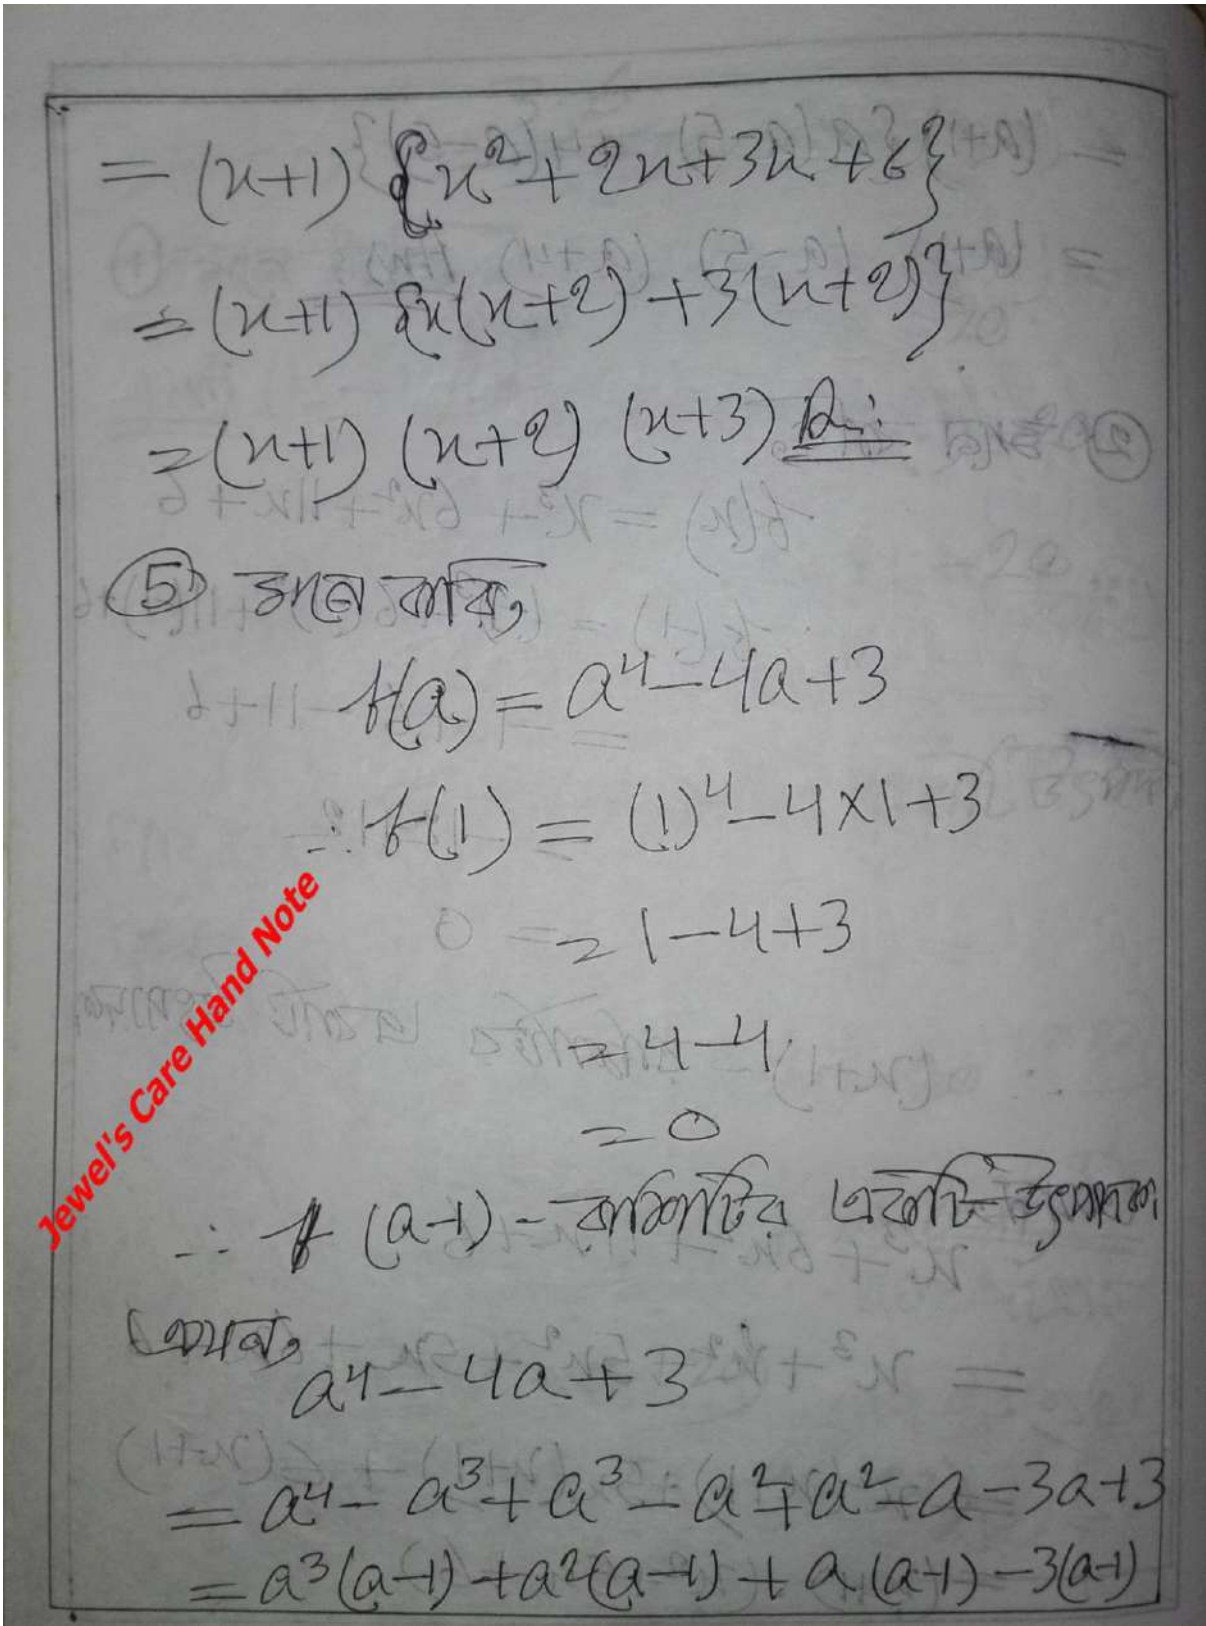 = (x+1) {x² + 2x+3x + 6}
= (x+1) {x(x+2) + 3(x+2)}
= (x+1) (x+2) (x+3) Ans:
(5) মনে করি,
f(a) = a⁴ - 4a + 3
∴ f(1) = (1)⁴ - 4×1 + 3
= 1 - 4 + 3
= 4 - 4
= 0
∴ (a-1) - রাশিটির একটি উৎপাদক
এখন,
a⁴ - 4a + 3
= a⁴ - a³ + a³ - a² + a² - a - 3a + 3
= a³(a-1) + a²(a-1) + a(a-1) - 3(a-1)
Jewel's Care Hand Note